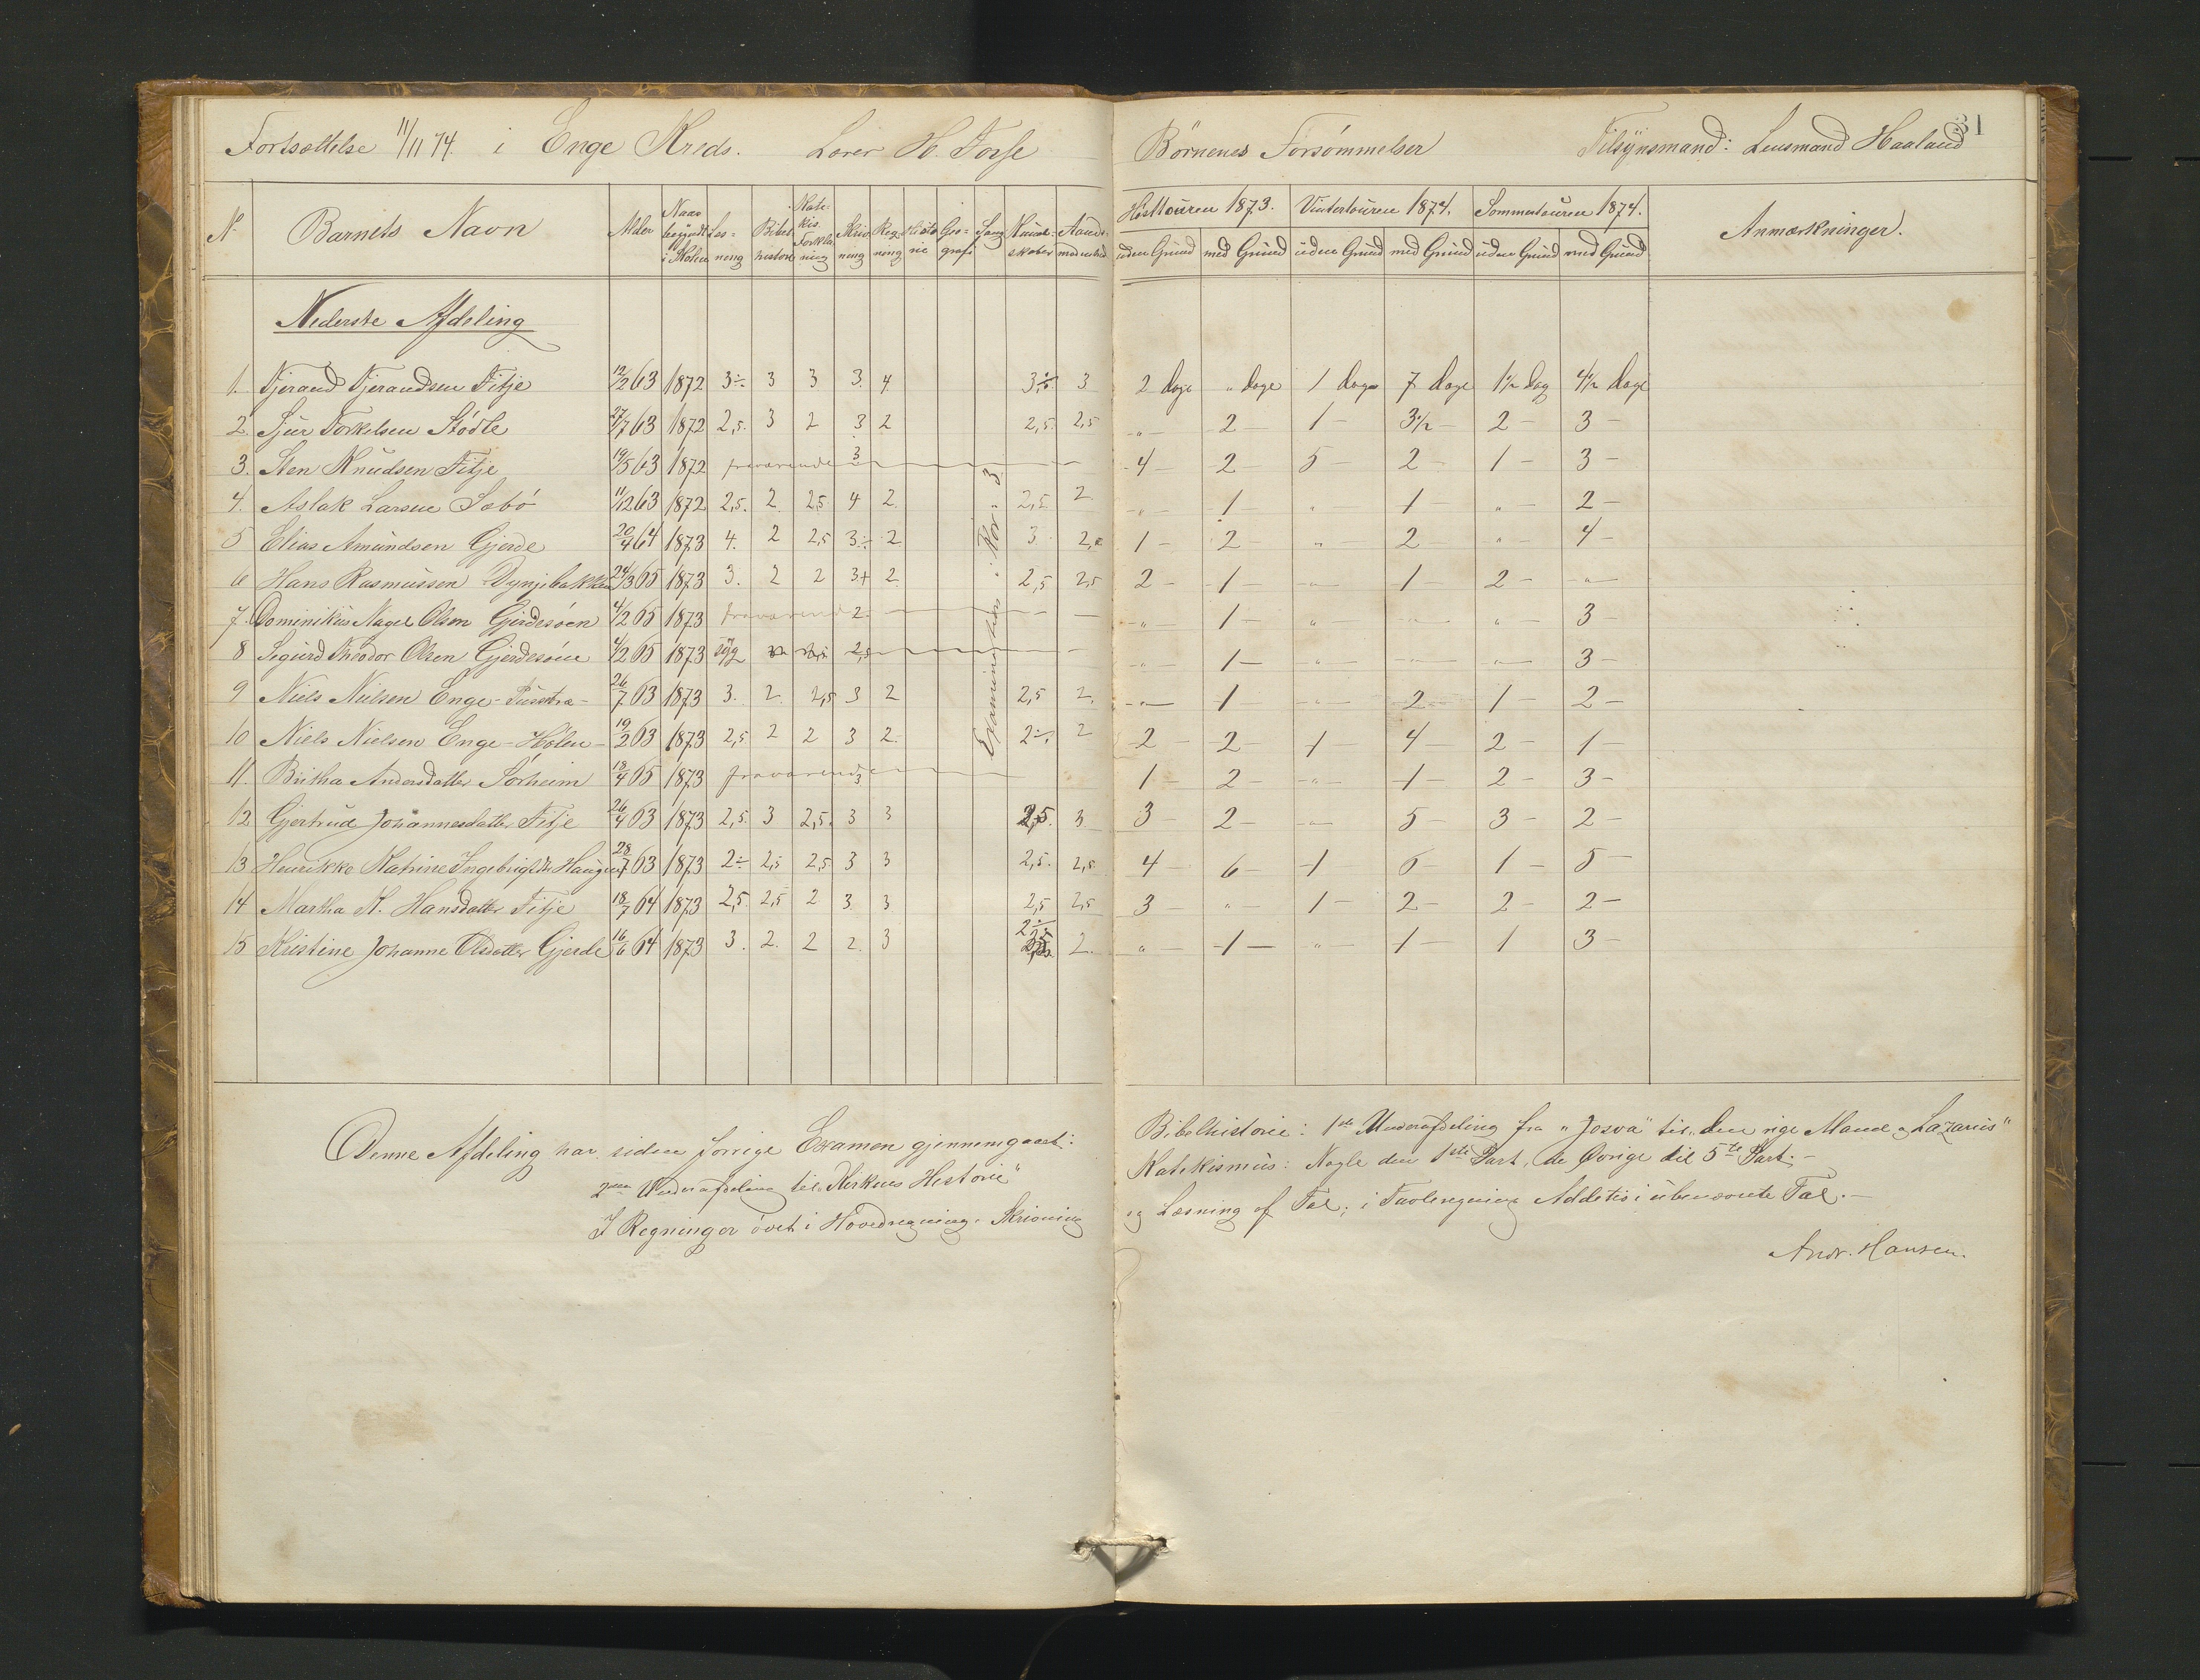 Fortsættelse 11/11 74. i Enge Kreds. Lærer H. Torse
Börnenes Forsömmelser Tilsynsmand: Lensmand Haaland 31
No Barnets Navn Alder Naar begyndt i Skolen Læsning Bibelhistorie Katekis. Forklaring Skrivning Regning Historie Geografi Sang Kundskaber Aandsmodenhed
Hösttouren 1873. Vintertouren 1874. Sommertouren 1874. Anmærkninger.
uden Grund med Grund uden Grund med Grund uden Grund med Grund
Nederste Afdeling
1. Tjerand Tjerandsen Fitje 12/2 63 1872 3÷ 3 3 3. 4 3÷ 3 2 dage " dage 1 dage 7 dage 1½ dag 4½ dage
2. Sjur Torkelsen Stödle 27/7 63 1872 2,5. 3 2 3 2 2,5. 2,5 " — 2 — 1 — 3½ — 2 — 3 —
3. Sten Knudsen Fitje 19/5 63 1872 fraværende 3 — 4 — 2 — 5 — 2 — 1 — 3 —
4. Aslak Larsen Sæbö 11/12 63 1872 2,5. 2. 2,5 4 2 2,5 2 " — 1 — " 1 — " — 2 —
5 Elias Amundsen Gjerde 20/4 64 1873 4. 2 2,5 3÷ 2 3 2,5 1 — 2 — " 2 — " — 4 —
6 Hans Rasmussen Dynjebakken 24/3 65 1873 3. 2 2 3+ 2 2,5 2,5 2 — 1 — " — 1 — 2 — " —
7. Dominikus Nagel Olsen Gjerdesöen 4/2 65 1873 fraværende 2 — " — 1 — " — " — " — 3 —
8 Sigurd Theodor Olsen Gjerdesöen 4/2 65 1873 syg 2,5 — " 1 — " — " — " — 3 —
9 Niels Nielsen Enge- 26/7 63 1873 3. 2. 2,5 3 2 2,5 2. " — 1 — " — 2 — 1 — 2 —
10 Niels Nielsen Enge-Hölen- 19/2 63 1873 2,5 2 2 3 2. 2÷ 2 2 — 2 — 1 — 4 — 2 — 1 —
11. Britha Andersdatter Sörheim 18/4 65 1873 fraværende 3 — 1 — 2 — " — 1 — 2 — 3 —
12 Gjertrud Johannesdatter Fitje 26/4 63 1873 2,5. 3 2,5. 3 3 2,5. 3 3 — 2 — " — 5 — 3 — 2 —
13 Henrikke Katrine Ingebrigtsdtr Haugen 28/7 63 1873 2÷ 2,5 2,5 3 3 2,5. 2,5 4 — 6 — 1 6 — 1 — 5 —
14 Martha K. Hansdatter Fitje 18/7 64 1873 2,5. 2,5 2 3. 3 2,5 2,5 3 — " — 1 — 2 — 2 — 2 —
15 Kristine Johanne Olsdatter Gjerde 16/6 64 1873 3. 2. 2 2. 3 2÷ 2. " — 1 — " 1 — 1 3 —
Denne Afdeling har siden forrige Examen gjennemgaaet: Bibelhistorie: 1ste Underafdeling fra "Josva" til "den rige Mand og Lazarus"
2den Underafdeling til "Kirkens Historie" Katekismus: Nogle den 1ste Part, de Övrige til 5te Part.—
I Regning er övet i Hovedregning, Skrivning og Læsning af Tal; i Tavleregning Additio i ubenævnte Tal.—
Andr. Hansen.